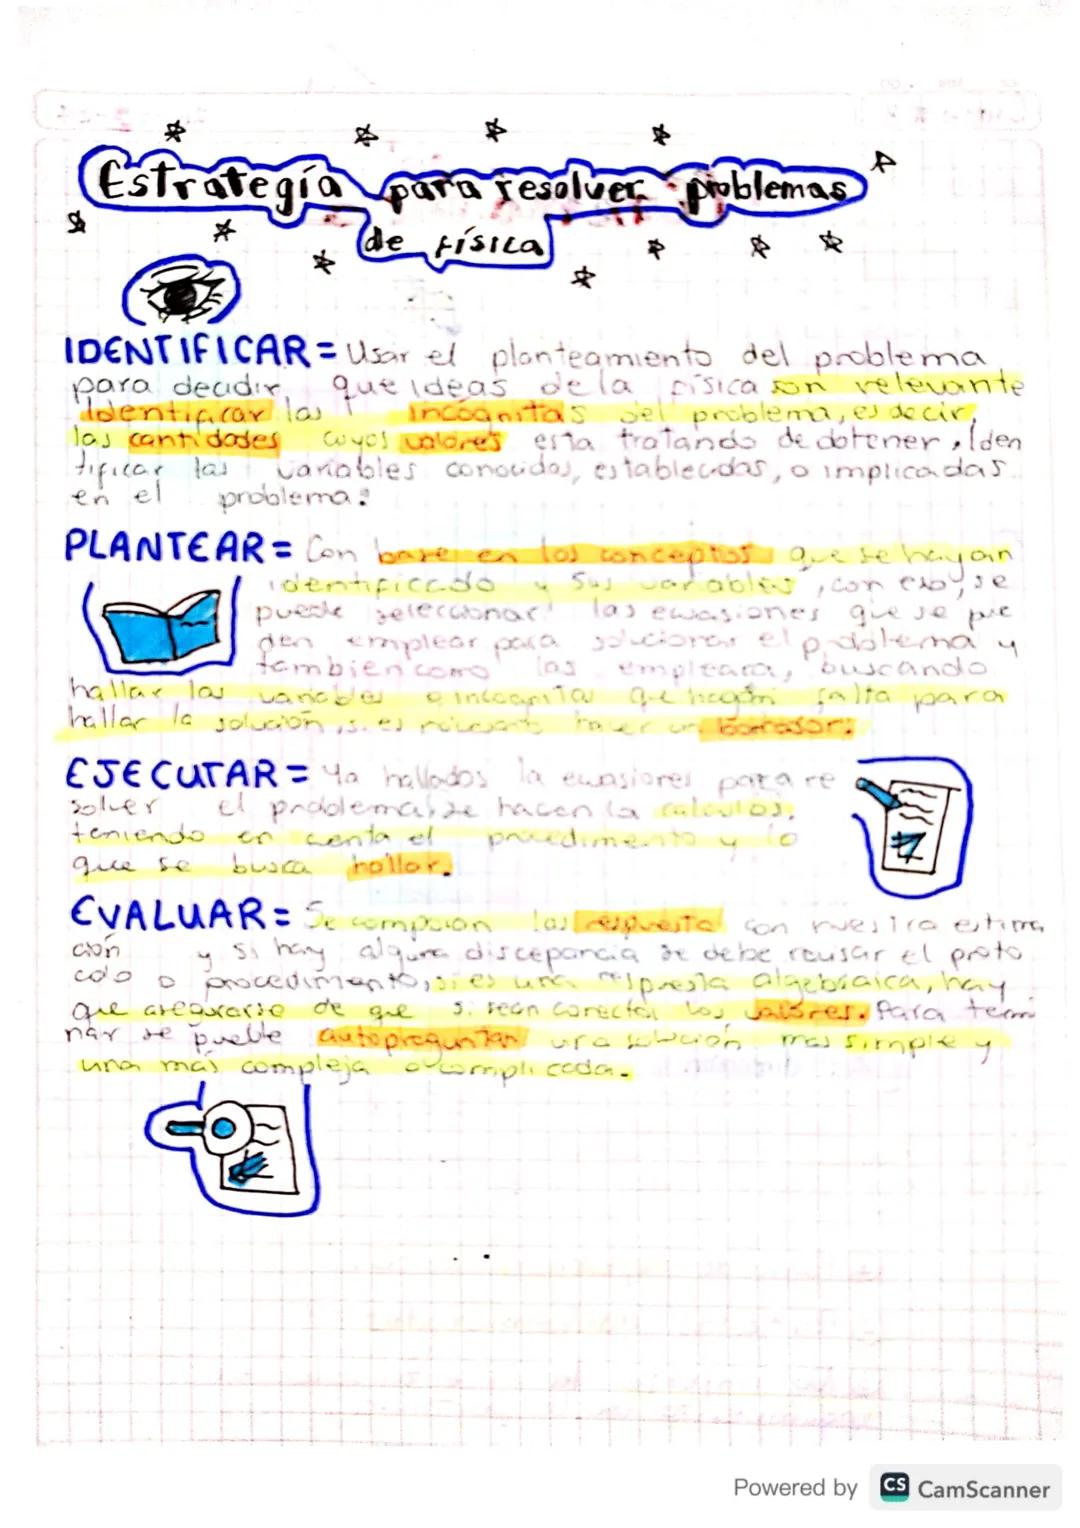 Estrategía para resolver problemas
de física
IDENTIFICAR= Usar el planteamiento del problema
para decidir que ideas de la física son relevante
Identificar las incognitas del problema, es decir,
las cantidades cuyos valores esta tratando de obtener, Iden
tificar las variables conocidas, establecidas, o implicadas
en el problema.
PLANTEAR= Con base en los conceptos que se hayan
identificado y sus variables, con eso, se
puede seleccionar las ecuasiones que se pue
den emplear para solucionar el problema y
tambien como las empleara, buscando
hallar las variables e incognitas que hagan falta para
hallar la solución, si es necesario hacer un borrador.
EJECUTAR= Ya hallados la ecuasiones para re
solver el problema, se hacen la calculos,
teniendo en cuenta el procedimento y lo
que se busca hallar.
EVALUAR= Se comparan las respuesta con nuestra estima
ción y si hay alguna discepancia se debe revisar el proto
colo o procedimento, si es una respuesta algebraica, hay
que asegurarse de que si sean correctos los valores. Para termi
nar se pueble autopreguntar una solución mas simple y
una más compleja o complicada.
Powered by CS CamScanner